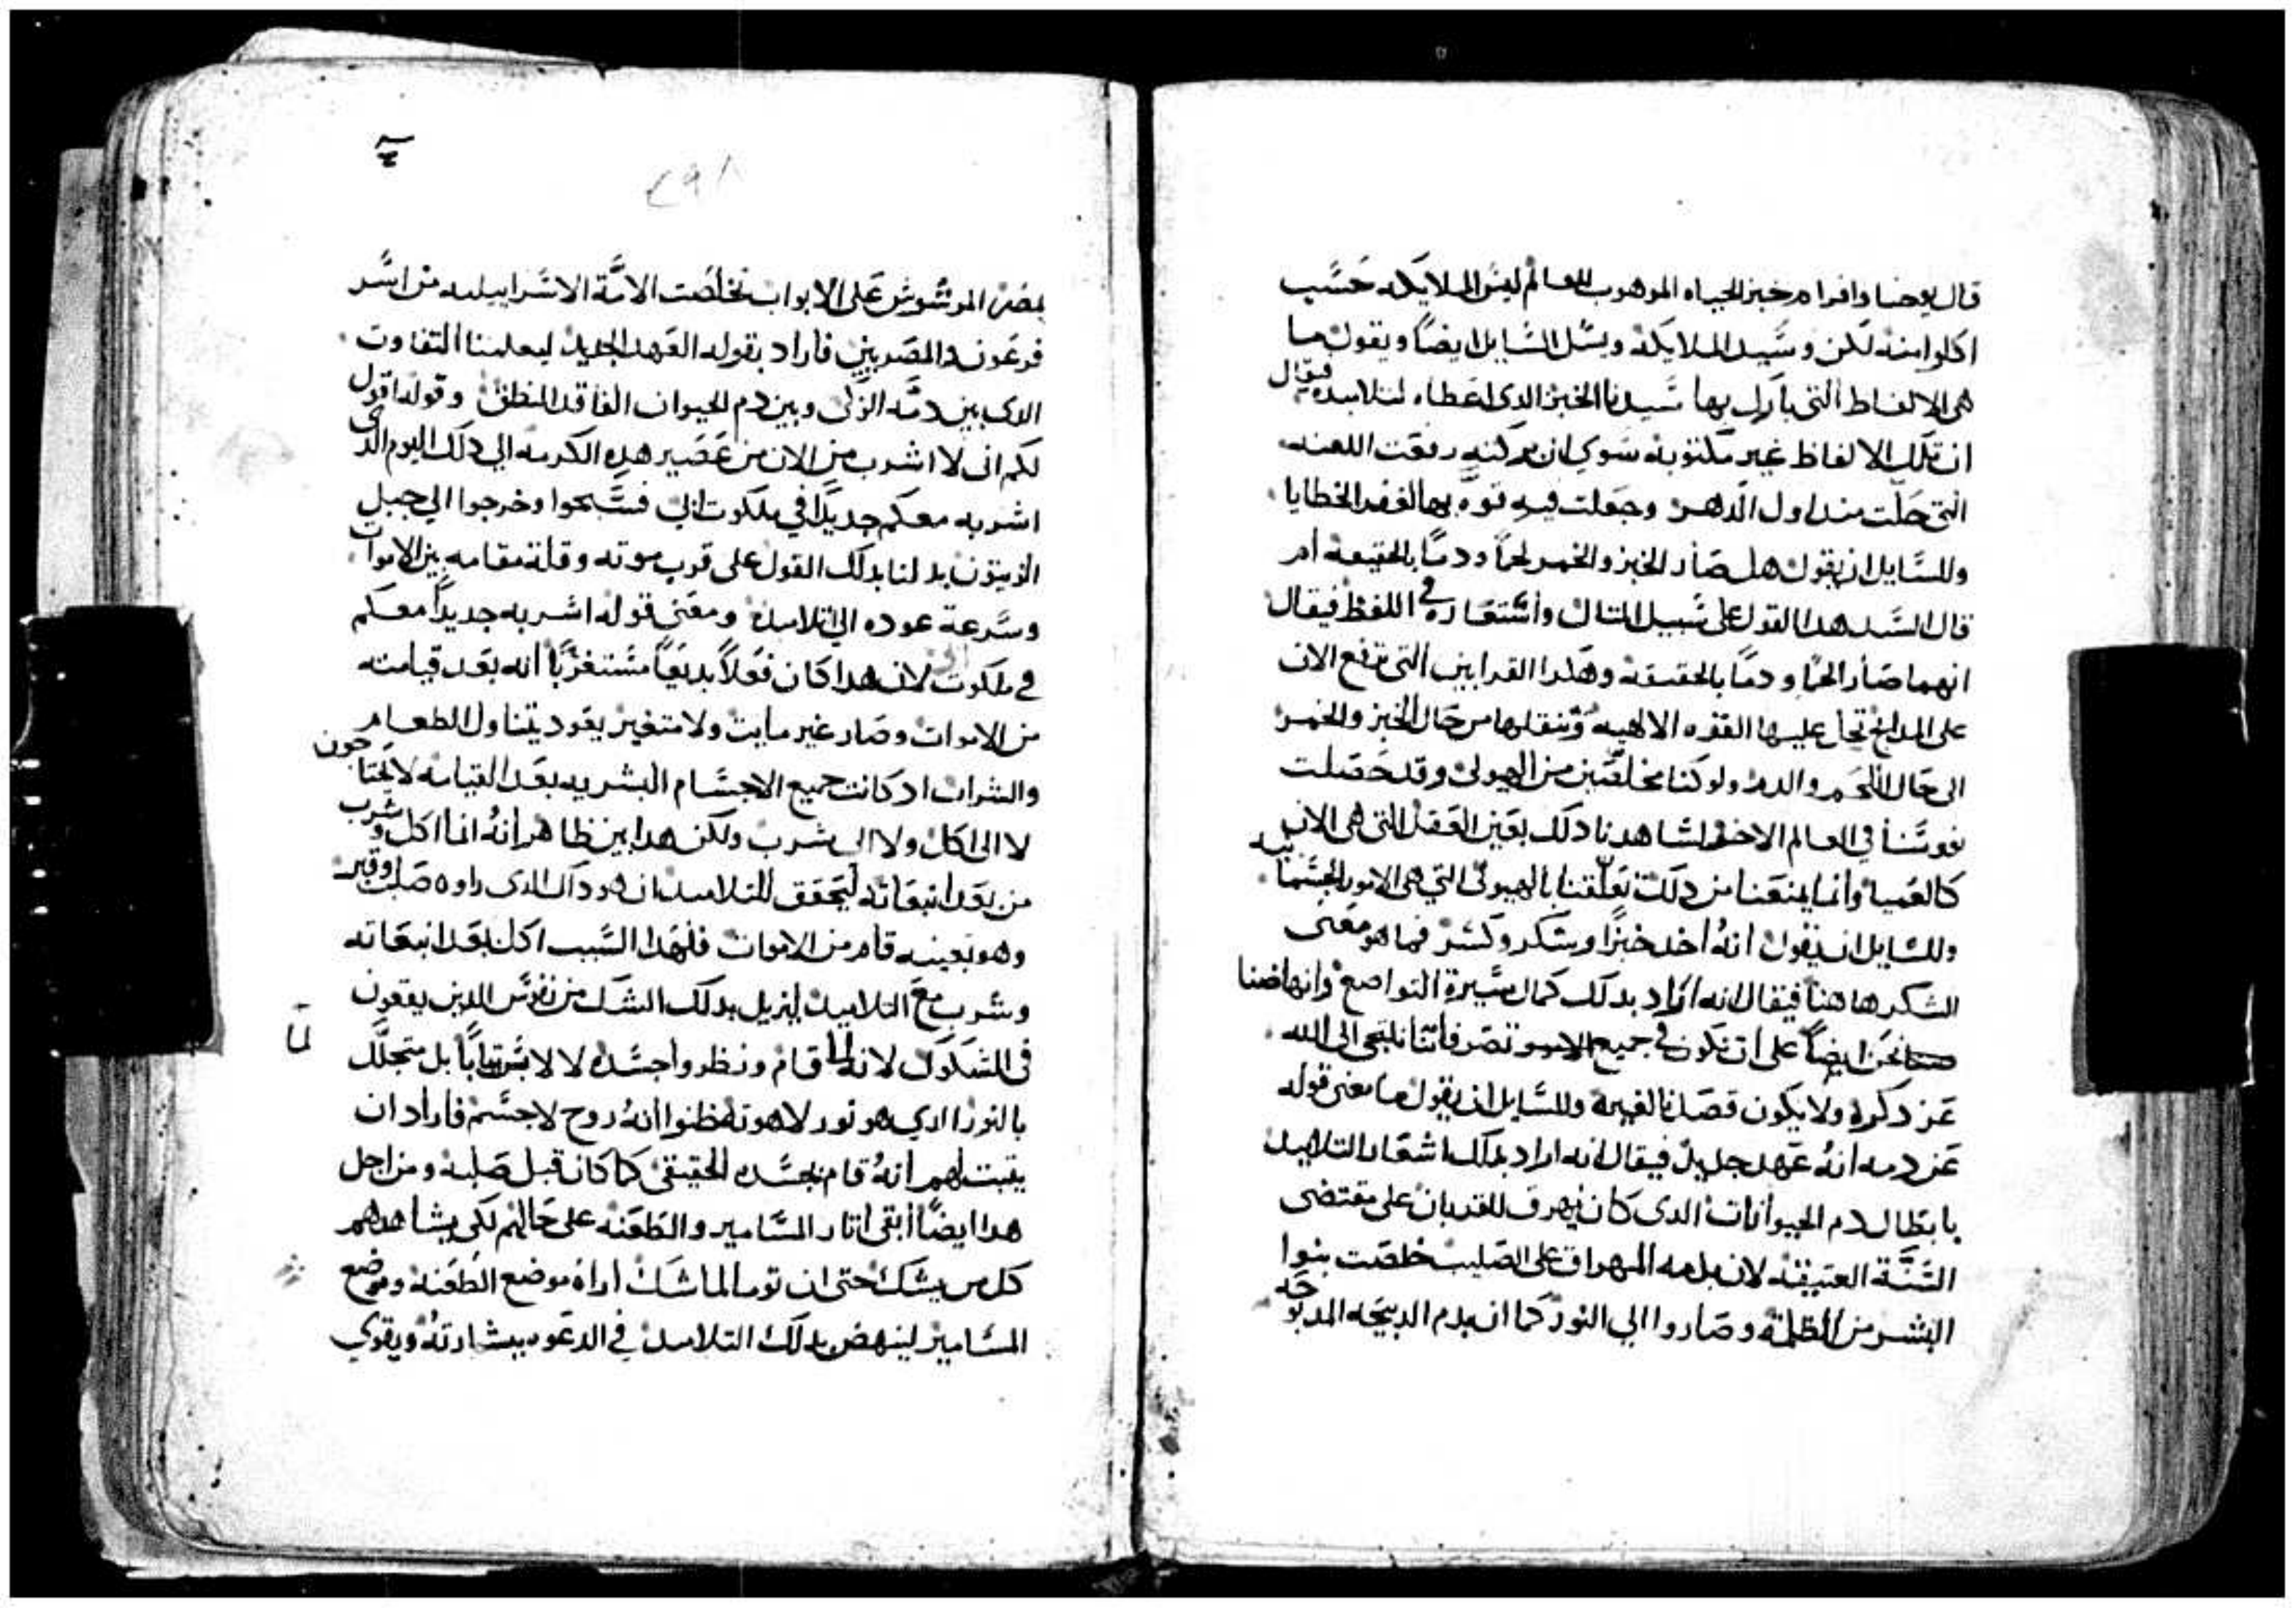 قال يوحنا وافرام خبز الحياه الموهوب للعالم ليس الملايكه حسب
اكلوا منه لكن وسيد الملايكة ويسل السايل ايضاً ويقول ما
هى الالفاظ التى بارك بها سيدنا الخبز الدى اعطاه لتلاميده فيقال
ان تلك الالفاظ غير مكتوبة سوي ان بركته رفعت اللعنه
التى حلت مند اول الدهر وجعلت فيه قوه بها لغفر الخطايا
وللسايل ان يقول هل صار الخبز والخمر لحماً ودماً بالحقيقة ام
قال السيد هدا القول على سبيل المتال واستعارة في اللفظ فيقال
انهما صارا لحماً ودماً بالحقيقة وهكدا القرابين التى ترفع الان
على المدابح تحل عليها القوه الالاهيه وتنقلها من حال الخبز والخمر
الى حال اللحم والدم ولو كنا مخلصين من الهيولى وقد حصلت
نفوسنا في العالم الاخر لشاهدنا دلك بعين العقل التى هى الان
كالعميا وانما يمنعنا من دلك تعلقنا بالهيولى التي هى الامور الجسمانيه
وللسايل ان يقول انه اخد خبزاً وشكر وكسر فما هو معنى
الشكر هاهنا فيقال انه اراد بدلك كمال سيرة التواضع وانهاضنا
نحن ايضاً على ان نكون في جميع الامور تصرفاتنا نلتجى الى الله
عز دكره ولا يكون قصدنا لغيره وللسايل ان يقول ما معنى قوله
عن دمه انه عهد جديد فيقال انه اراد بدلك اشعار التلاميد
بابطال دم الحيوانات الدى كان يهرق للقربان على مقتضى
السنة العتيقة لان بدمه المهراق على الصليب خلصت بنوا
البشر من الظلمة وصاروا الي النور كما ان بدم الدبيحه المدبوحه
٢٩٨
بمصر المرشوش على الابواب تخلصت الامة الاسراييليه من اسر
فرعون والمصريين فاراد بقوله العهد الجديد ليعلمنا التفاوت
الدى بين دمه الزكى وبين دم الحيوان الفاقد المنطق وقوله اقول
لكم انى لا اشرب من الان من عصير هده الكرمه الي دلك اليوم الدى
اشربه معكم جديداً في ملكوت ابى فسبحوا وخرجوا الي جبل
الزيتون يدلنا بدلك القول على قرب موته وقلة مقامه بين الاموات
وسرعة عوده الي تلاميده ومعنى قوله اشربه جديداً معكم
في ملكوت ابى لان هدا كان فعلاً بديعاً مستغرباً انه بعد قيامته
من الاموات وصار غير مايت ولا متغير يعود يتناول الطعام
والشراب اد كانت جميع الاجسام البشريه بعد القيامه لا يحتاجون
لا الى اكل ولا الى شرب ولكن هدا بين ظاهر انه انما اكل وشرب
من بعد انبعاته ليحقق للتلاميد ان هو داك الدى راوه صلب وقبر
وهو بعينه قام من الاموات فلهدا السبب اكل بعد انبعاته
وشرب مع التلاميد ليزيل بدلك الشك من نفوس الدين يقعون
فى الشكوك لانه لما قام ونظروا جسده لا لابس تياباً بل متجلل
لما
بالنور الدي هو نور لاهوته ظنوا انه روح لا جسم فاراد ان
يتبت لهم انه قام بجسده الحقيقى كما كان قبل صلبه ومن اجل
هدا ايضاً ابقى اتار المسامير والطعنه على حالهم لكى يشاهدهم
كل من يشك حتى ان توما لما شك اراه موضع الطعنه وموضع
المسامير لينهض بدلك التلاميد في الدعوه ببشارته ويقوي